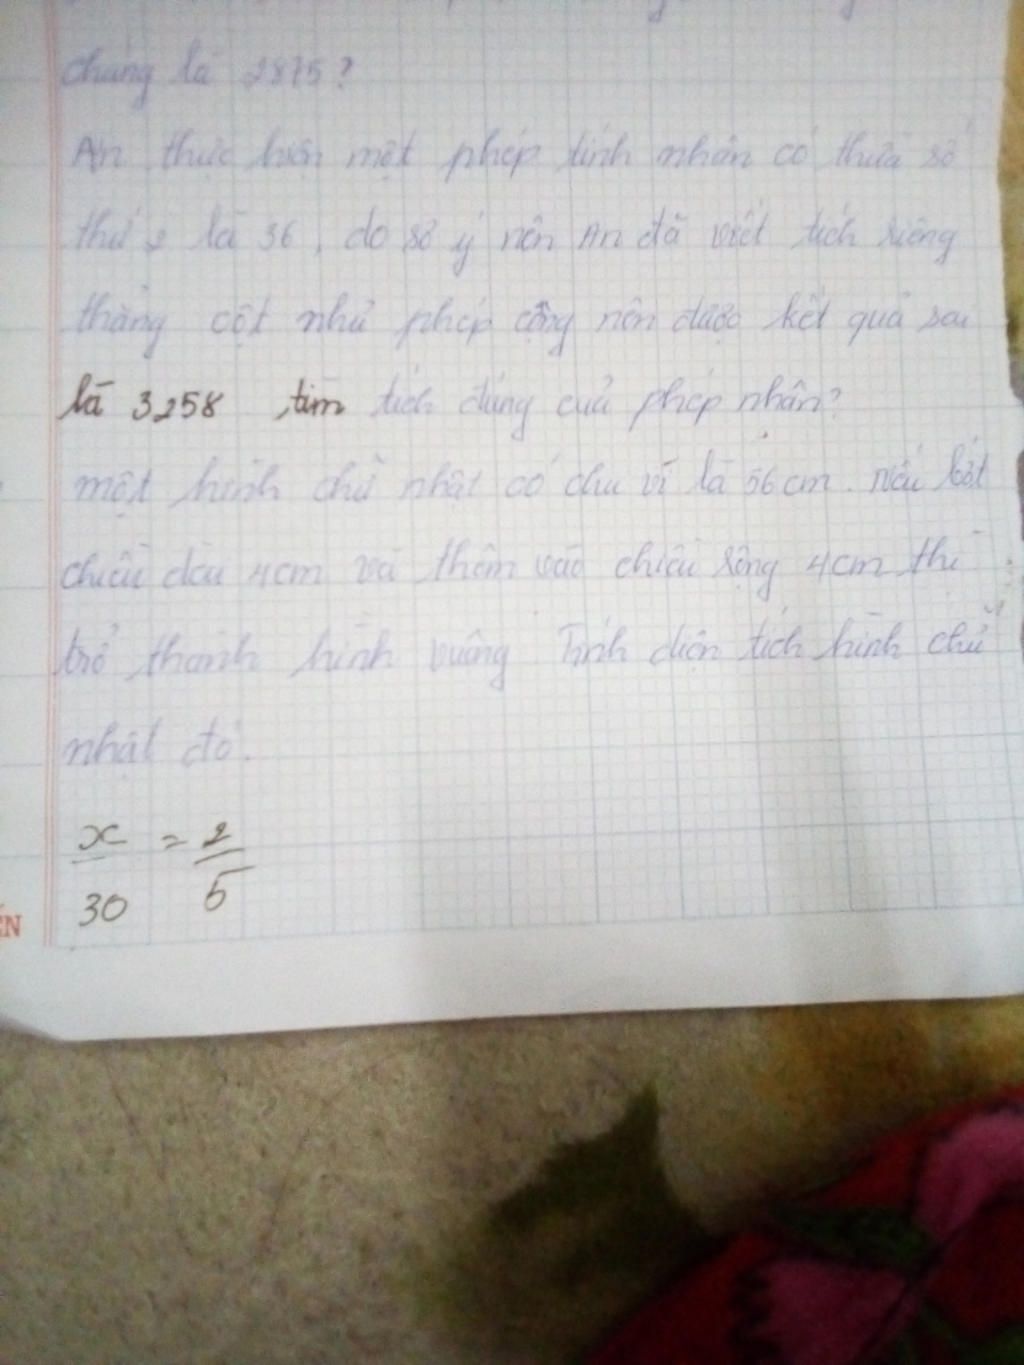 chúng là 2875?
An thực hiện một phép tính nhân có thừa số
thứ 2 là 36, do sơ ý nên An đã viết tích riêng
thẳng cột như phép cộng nên được kết quả sai
là 3258 , tìm tích đúng của phép nhân?
một hình chữ nhật có chu vi là 56 cm. Nếu bớt
chiều dài 4cm và thêm vào chiều rộng 4cm thì
trở thành hình vuông Tính diện tích hình chữ
nhật đó.
x/30 = 2/5